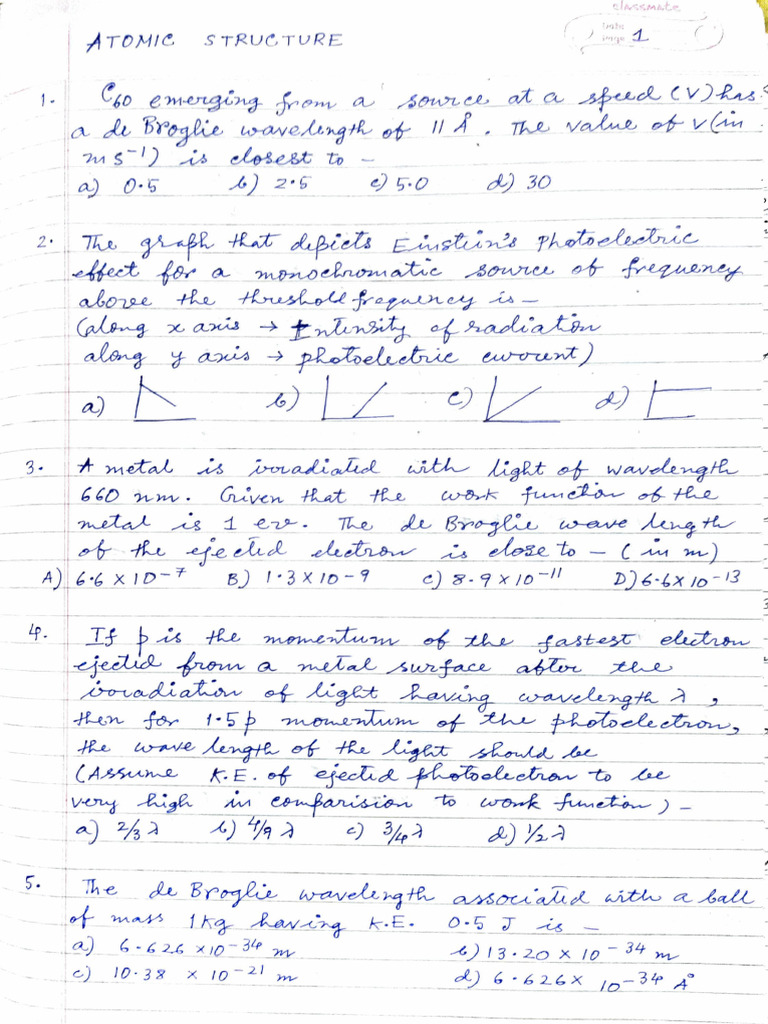 classmate
Date
Page 1
ATOMIC STRUCTURE
1. C60 emerging from a source at a speed (V) has
a de Broglie wavelength of 11 Å. The value of V (in
ms-1) is closest to -
a) 0.5 b) 2.5 c) 5.0 d) 30
2. The graph that depicts Einstein's photoelectric
effect for a monochromatic source of frequency
above the threshold frequency is -
(along x axis → Intensity of radiation
along y axis → photoelectric current)
a) b) c) d)
3. A metal is irradiated with light of wavelength
660 nm. Given that the work function of the
metal is 1 ev. The de Broglie wave length
of the ejected electron is close to - (in m)
A) 6.6 X 10-7 B) 1.3 X 10-9 c) 8.9 X 10-11 D) 6.6 X 10-13
4. If p is the momentum of the fastest electron
ejected from a metal surface after the
irradiation of light having wavelength λ,
then for 1.5p momentum of the photoelectron,
the wave length of the light should be
(Assume K.E. of ejected photoelectron to be
very high in comparision to work function) -
a) 2/3 λ b) 4/9 λ c) 3/4 λ d) 1/2 λ
5. The de Broglie wavelength associated with a ball
of mass 1 Kg having K.E. 0.5 J is -
a) 6.626 X 10-34 m b) 13.20 X 10-34 m
c) 10.38 X 10-21 m d) 6.626 X 10-34 Å